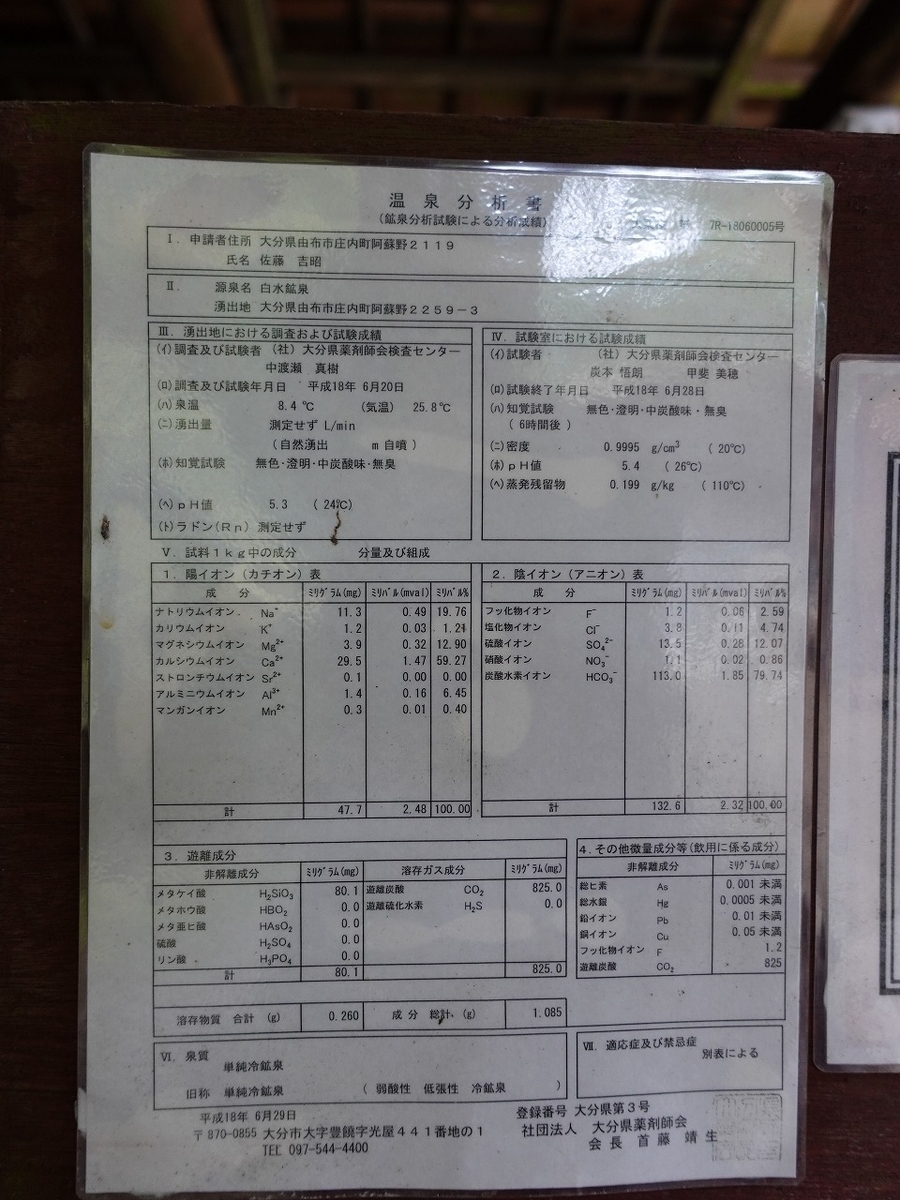 温泉分析書
（鉱泉分析試験による分析成績） 7R-18060005号
Ⅰ．申請者住所 大分県由布市庄内町阿蘇野２１１９
氏名 佐藤 吉昭
Ⅱ． 源泉名 白水鉱泉
湧出地 大分県由布市庄内町阿蘇野２２５９－３
Ⅲ．湧出地における調査および試験成績
(ｲ)調査及び試験者 （社）大分県薬剤師会検査センター
中渡瀬 真樹
(ﾛ)調査及び試験年月日 平成18年 6月20日
(ﾊ)泉温 8.4 ℃ (気温) 25.8℃
(ﾆ)湧出量 測定せず L/min
（自然湧出 m 自噴）
(ﾎ)知覚試験 無色・澄明・中炭酸味・無臭
(ﾍ)ｐＨ値 5.3 ( 24℃)
(ﾄ)ラドン(Ｒｎ) 測定せず
Ⅳ．試験室における試験成績
(ｲ)試験者 （社）大分県薬剤師会検査センター
炭本 悟朗 甲斐 美穂
(ﾛ)試験終了年月日 平成18年 6月28日
(ﾊ)知覚試験 無色・澄明・中炭酸味・無臭
( 6時間後 )
(ﾆ)密度 0.9995 g/cm³ ( 20℃)
(ﾎ)ｐＨ値 5.4 ( 26℃)
(ﾍ)蒸発残留物 0.199 g/kg ( 110℃)
Ⅴ．試料１ｋｇ中の成分 分量及び組成
１．陽イオン（カチオン）表
成 分 ﾐﾘｸﾞﾗﾑ(mg) ﾐﾘﾊﾞﾙ(mval) ﾐﾘﾊﾞﾙ%
ナトリウムイオン． Na⁺ 11.3 0.49 19.76
カリウムイオン K⁺ 1.2 0.03 1.21
マグネシウムイオン Mg²⁺ 3.9 0.32 12.90
カルシウムイオン Ca²⁺ 29.5 1.47 59.27
ストロンチウムイオン Sr²⁺ 0.1 0.00 0.00
アルミニウムイオン Al³⁺ 1.4 0.16 6.45
マンガンイオン Mn²⁺ 0.3 0.01 0.40
計 47.7 2.48 100.00
２．陰イオン（アニオン）表
成 分 ﾐﾘｸﾞﾗﾑ(mg) ﾐﾘﾊﾞﾙ(mval) ﾐﾘﾊﾞﾙ%
フッ化物イオン F⁻ 1.2 0.06 2.59
塩化物イオン Cl⁻ 3.8 0.11 4.74
硫酸イオン SO₄²⁻ 13.5 0.28 12.07
硝酸イオン NO₃⁻ 1.1 0.02 0.86
炭酸水素イオン HCO₃⁻ 113.0 1.85 79.74
計 132.6 2.32 100.00
３．遊離成分
非解離成分 ﾐﾘｸﾞﾗﾑ(mg) 溶存ガス成分 ﾐﾘｸﾞﾗﾑ(mg)
メタケイ酸 H₂SiO₃ 80.1 遊離炭酸 CO₂ 825.0
メタホウ酸 HBO₂ 0.0 遊離硫化水素 H₂S 0.0
メタ亜ヒ酸 HAsO₂ 0.0
硫酸 H₂SO₄ 0.0
リン酸 H₃PO₄ 0.0
計 80.1 825.0
４．その他微量成分等(飲用に係る成分)
非解離成分 ﾐﾘｸﾞﾗﾑ(mg)
総ヒ素 As 0.001 未満
総水銀 Hg 0.0005 未満
鉛イオン Pb 0.01 未満
銅イオン Cu 0.05 未満
フッ化物イオン F 1.2
遊離炭酸 CO₂ 825
溶存物質 合計 (g) 0.260 成 分 総計 (g) 1.085
Ⅵ．泉質
単純冷鉱泉
旧称 単純冷鉱泉 （ 弱酸性 低張性 冷鉱泉 ）
Ⅶ．適応症及び禁忌症
別表による
平成18年 6月29日
〒870-0855 大分市大字豊饒字光屋４４１番地の１
TEL 097-544-4400
登録番号 大分県第３号
社団法人 大分県薬剤師会
会 長 首 藤 靖 生